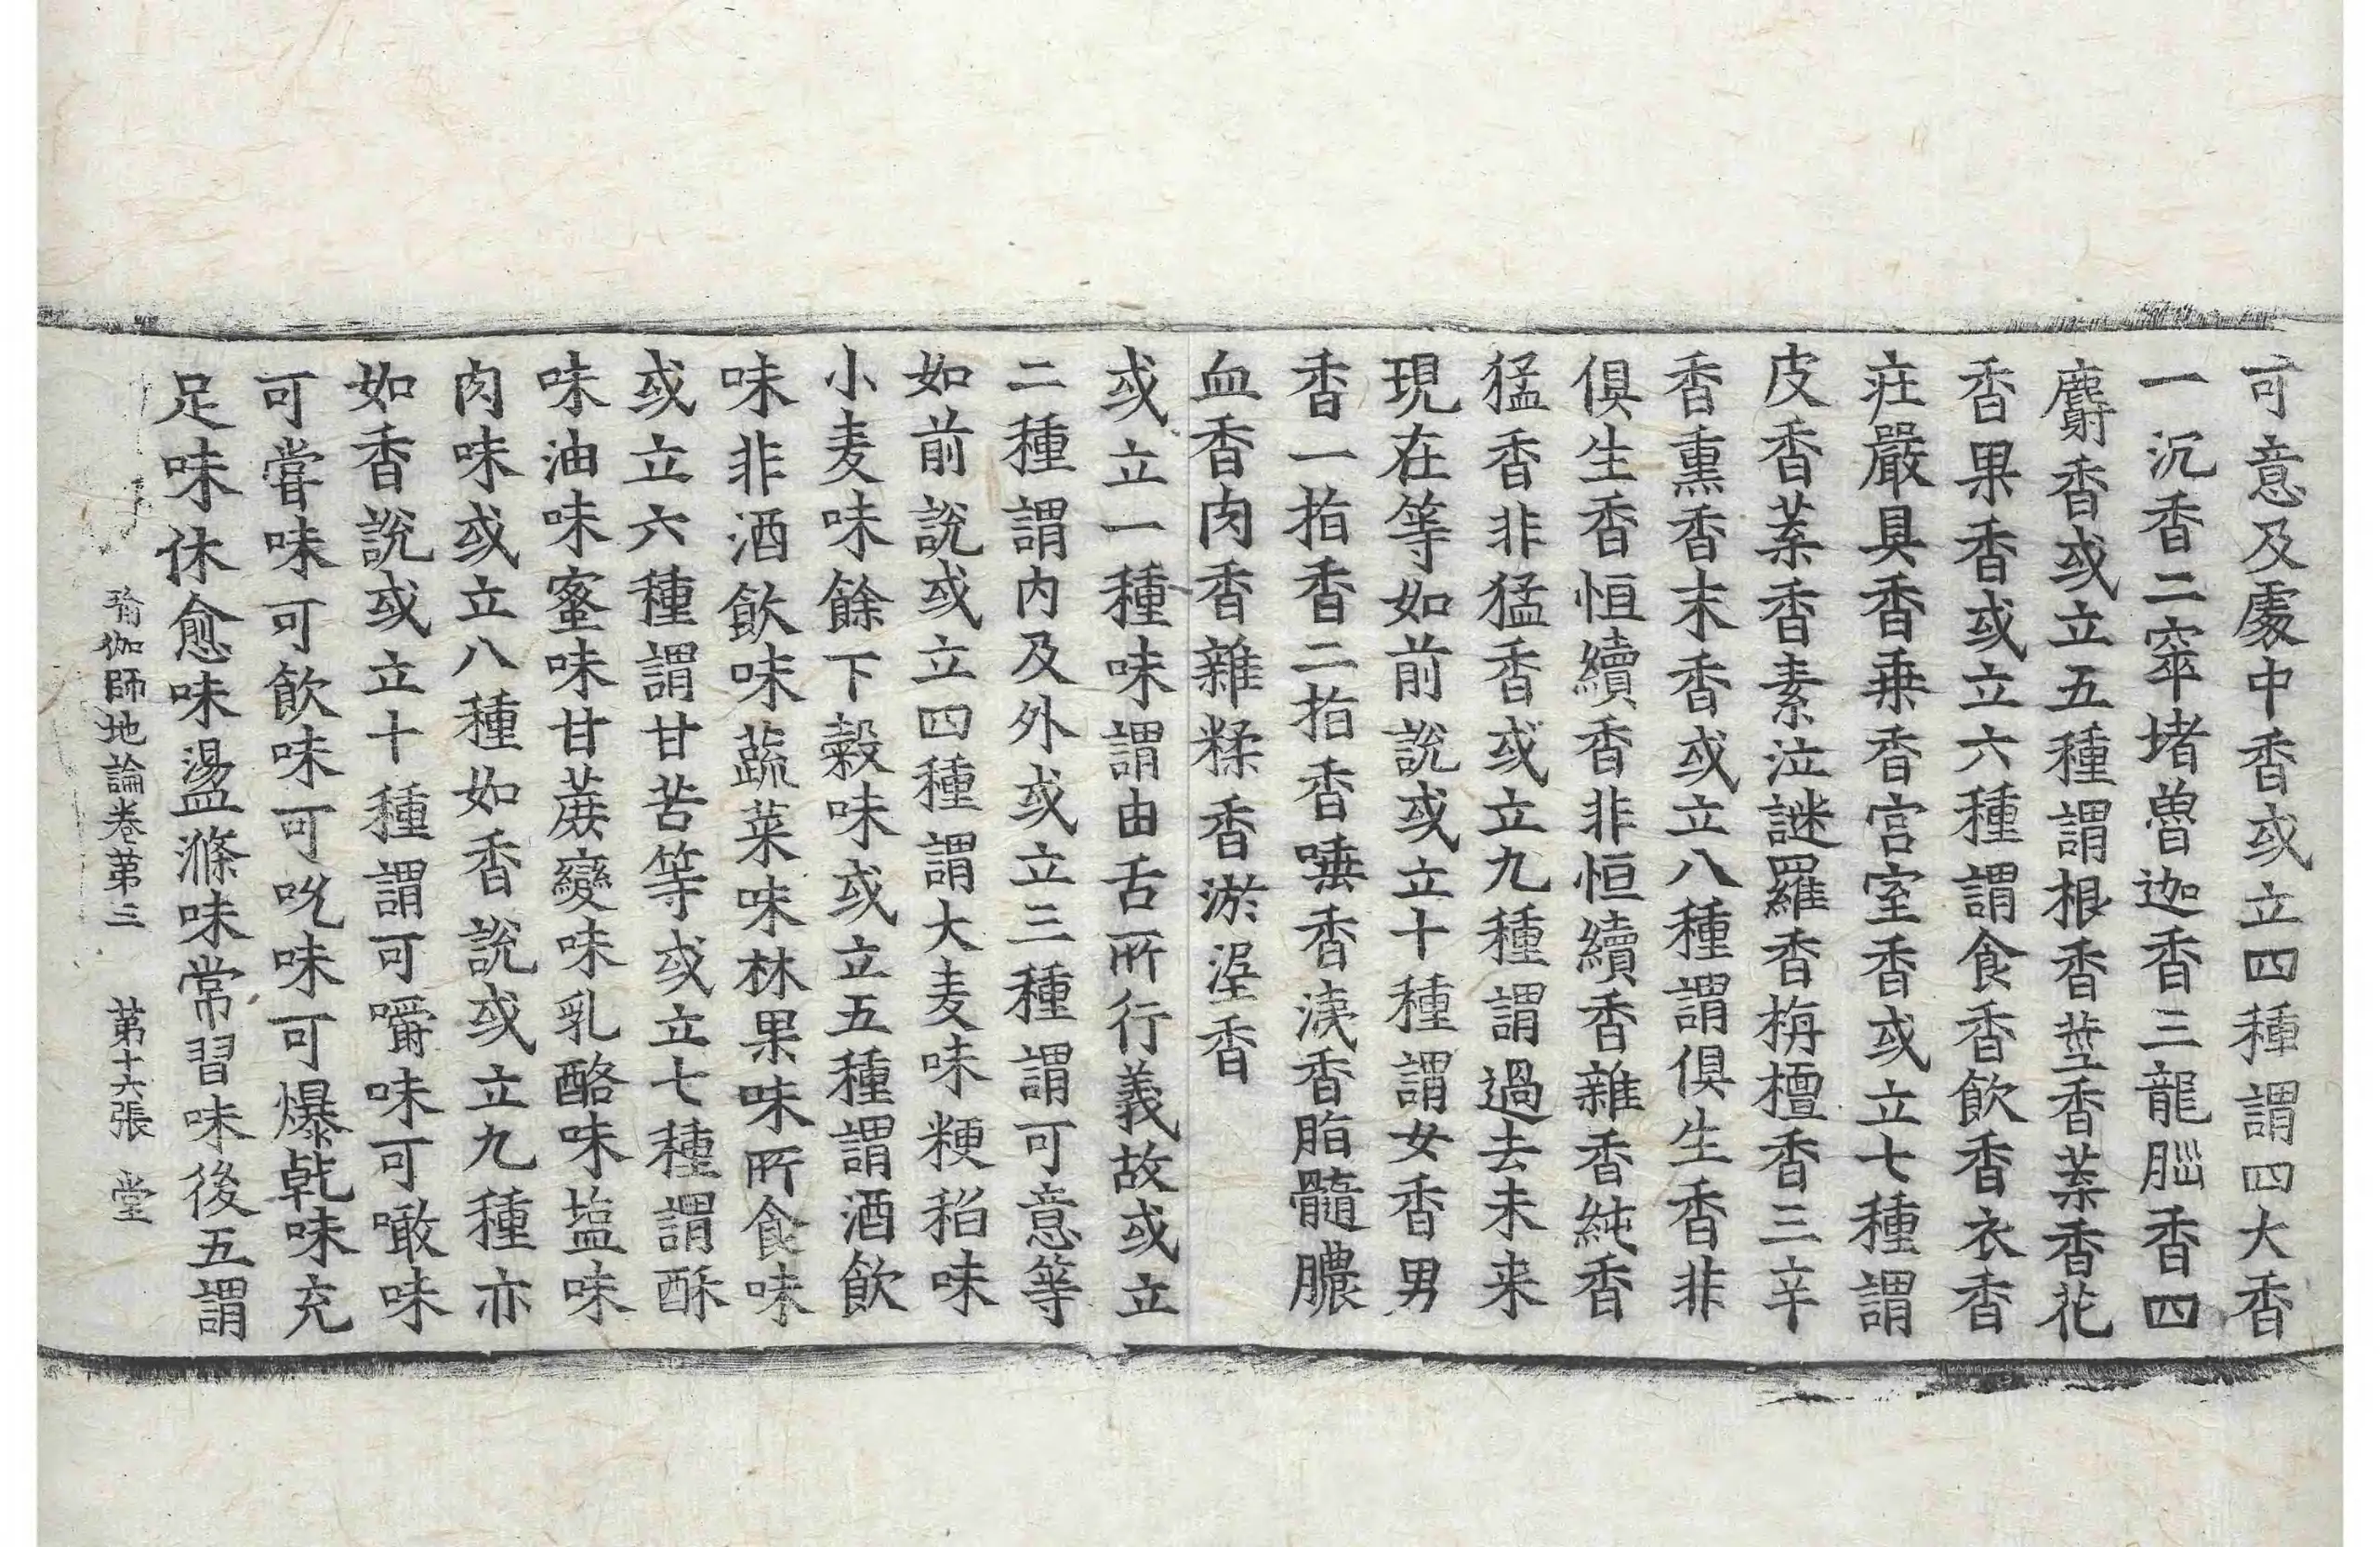 可意及處中香或立四種謂四大香
一沉香二窣堵魯迦香三龍腦香四
麝香或立五種謂根香莖香葉香花
香果香或立六種謂食香飲香衣香
莊嚴具香乗香宫室香或立七種謂
皮香葉香素泣謎羅香栴檀香三辛
香熏香末香或立八種謂俱生香非
俱生香恒續香非恒續香雜香純香
猛香非猛香或立九種謂過去未来
現在等如前說或立十種謂女香男
香一指香二指香唾香洟香脂髓膿
血香肉香雜糅香淤泥香
或立一種味謂由舌所行義故或立
二種謂内及外或立三種謂可意等
如前說或立四種謂大麦味粳稻味
小麦味餘下穀味或立五種謂酒飲
味非酒飲味蔬菜味林果味所食味
或立六種謂甘苦等或立七種謂酥
味油味蜜味甘蔗變味乳酪味塩味
肉味或立八種如香說或立九種亦
如香說或立十種謂可嚼味可噉味
可嘗味可飲味可吮味可爆乾味充
足味休愈味盪滌味常習味後五謂
瑜伽師地論卷第三 第十六張 堂